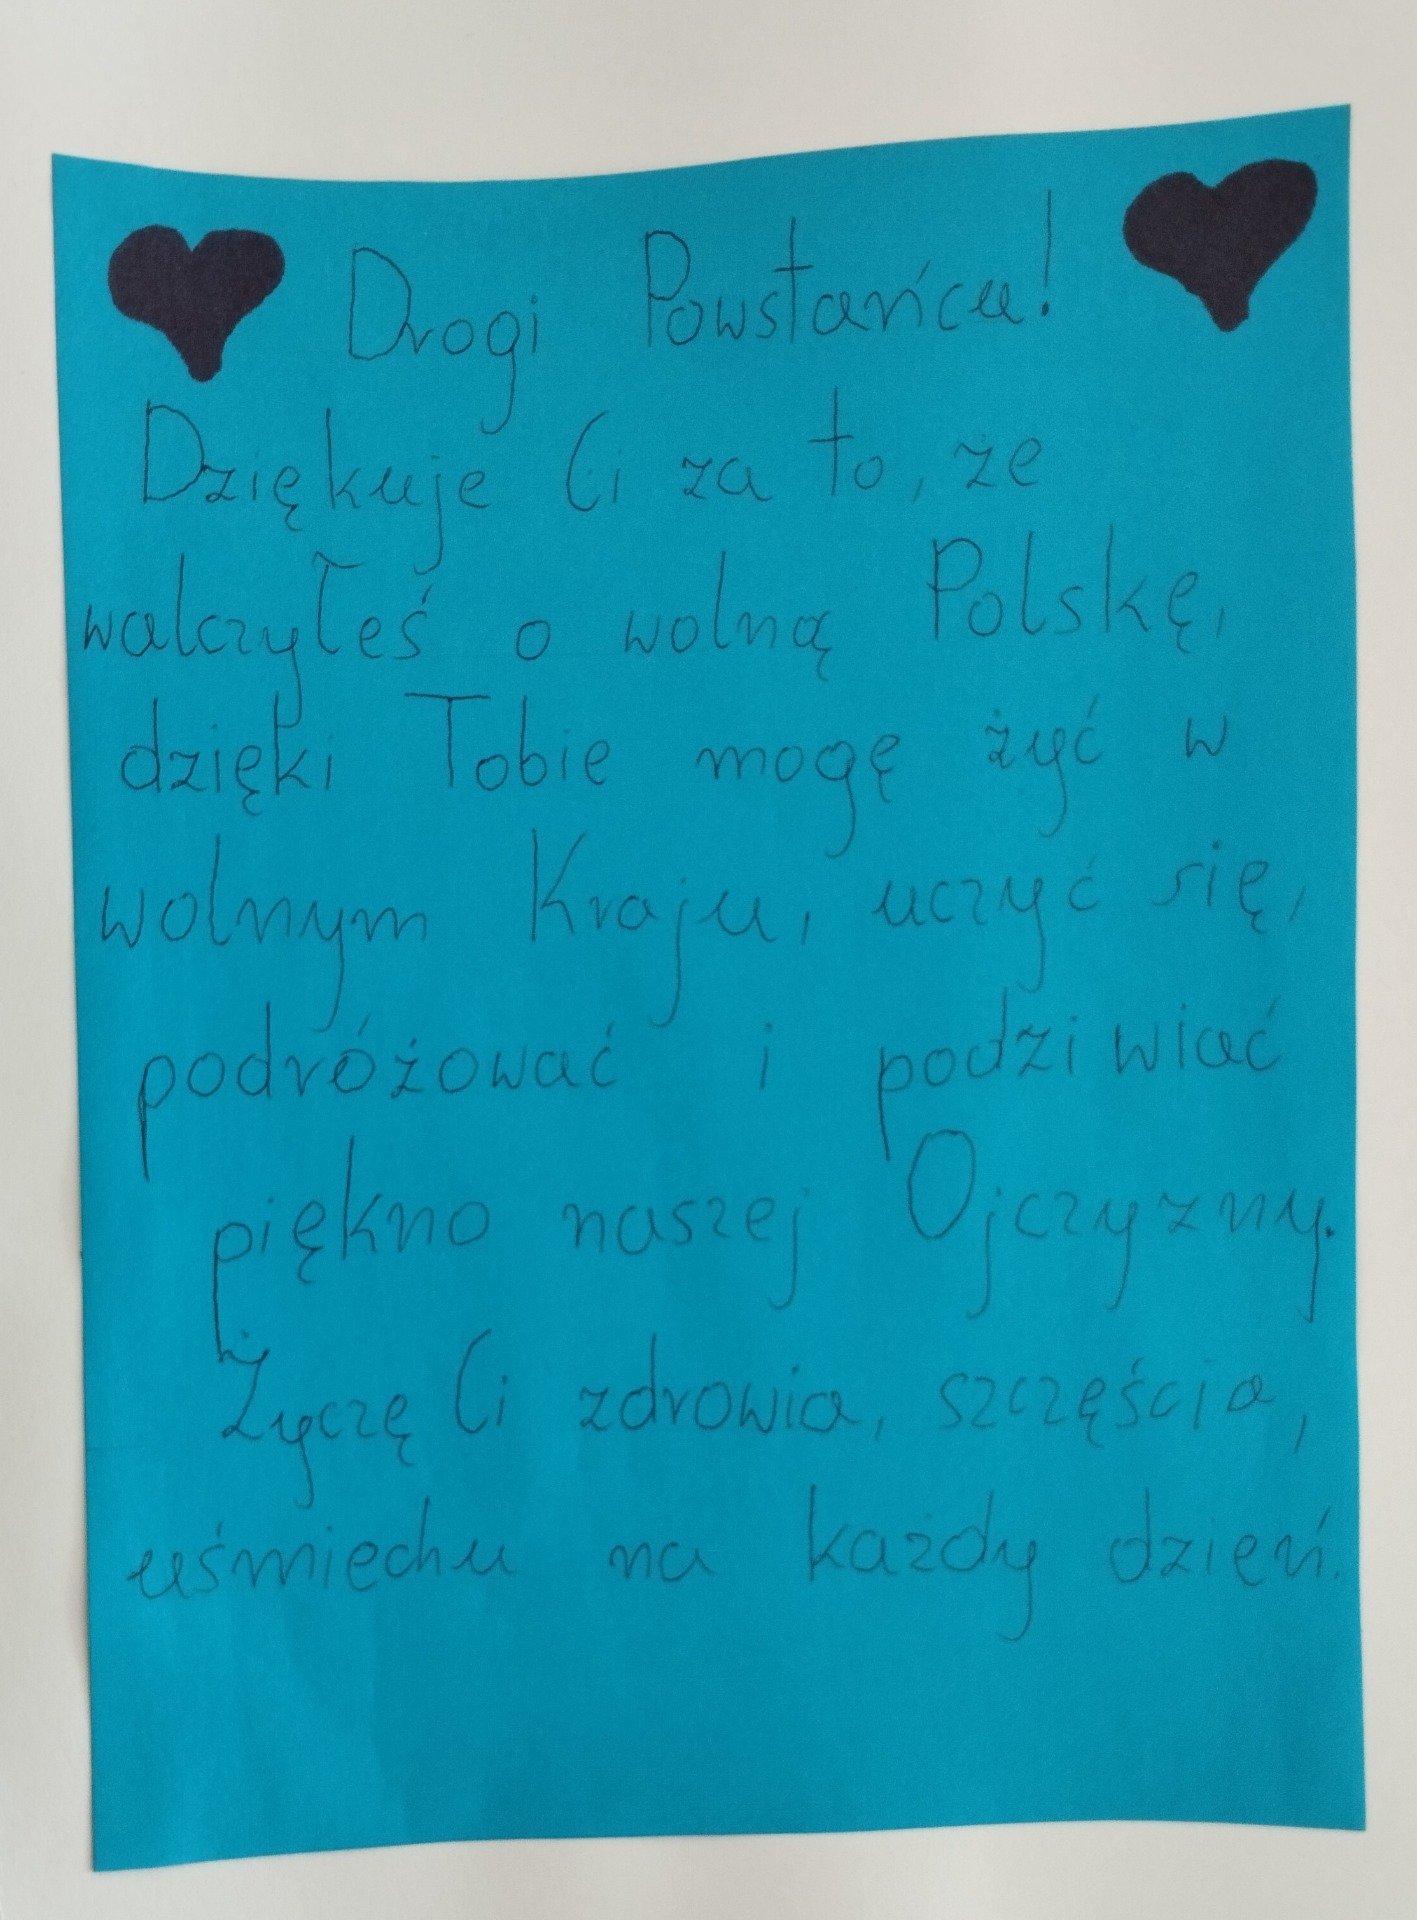 Drogi Powstańcu!
Dziękuje Ci za to, że
walczyłeś o wolną Polskę,
dzięki Tobie mogę żyć w
wolnym Kraju, uczyć się,
podróżować i podziwiać
piękno naszej Ojczyzny.
Życzę Ci zdrowia, szczęścia,
uśmiechu na każdy dzień.